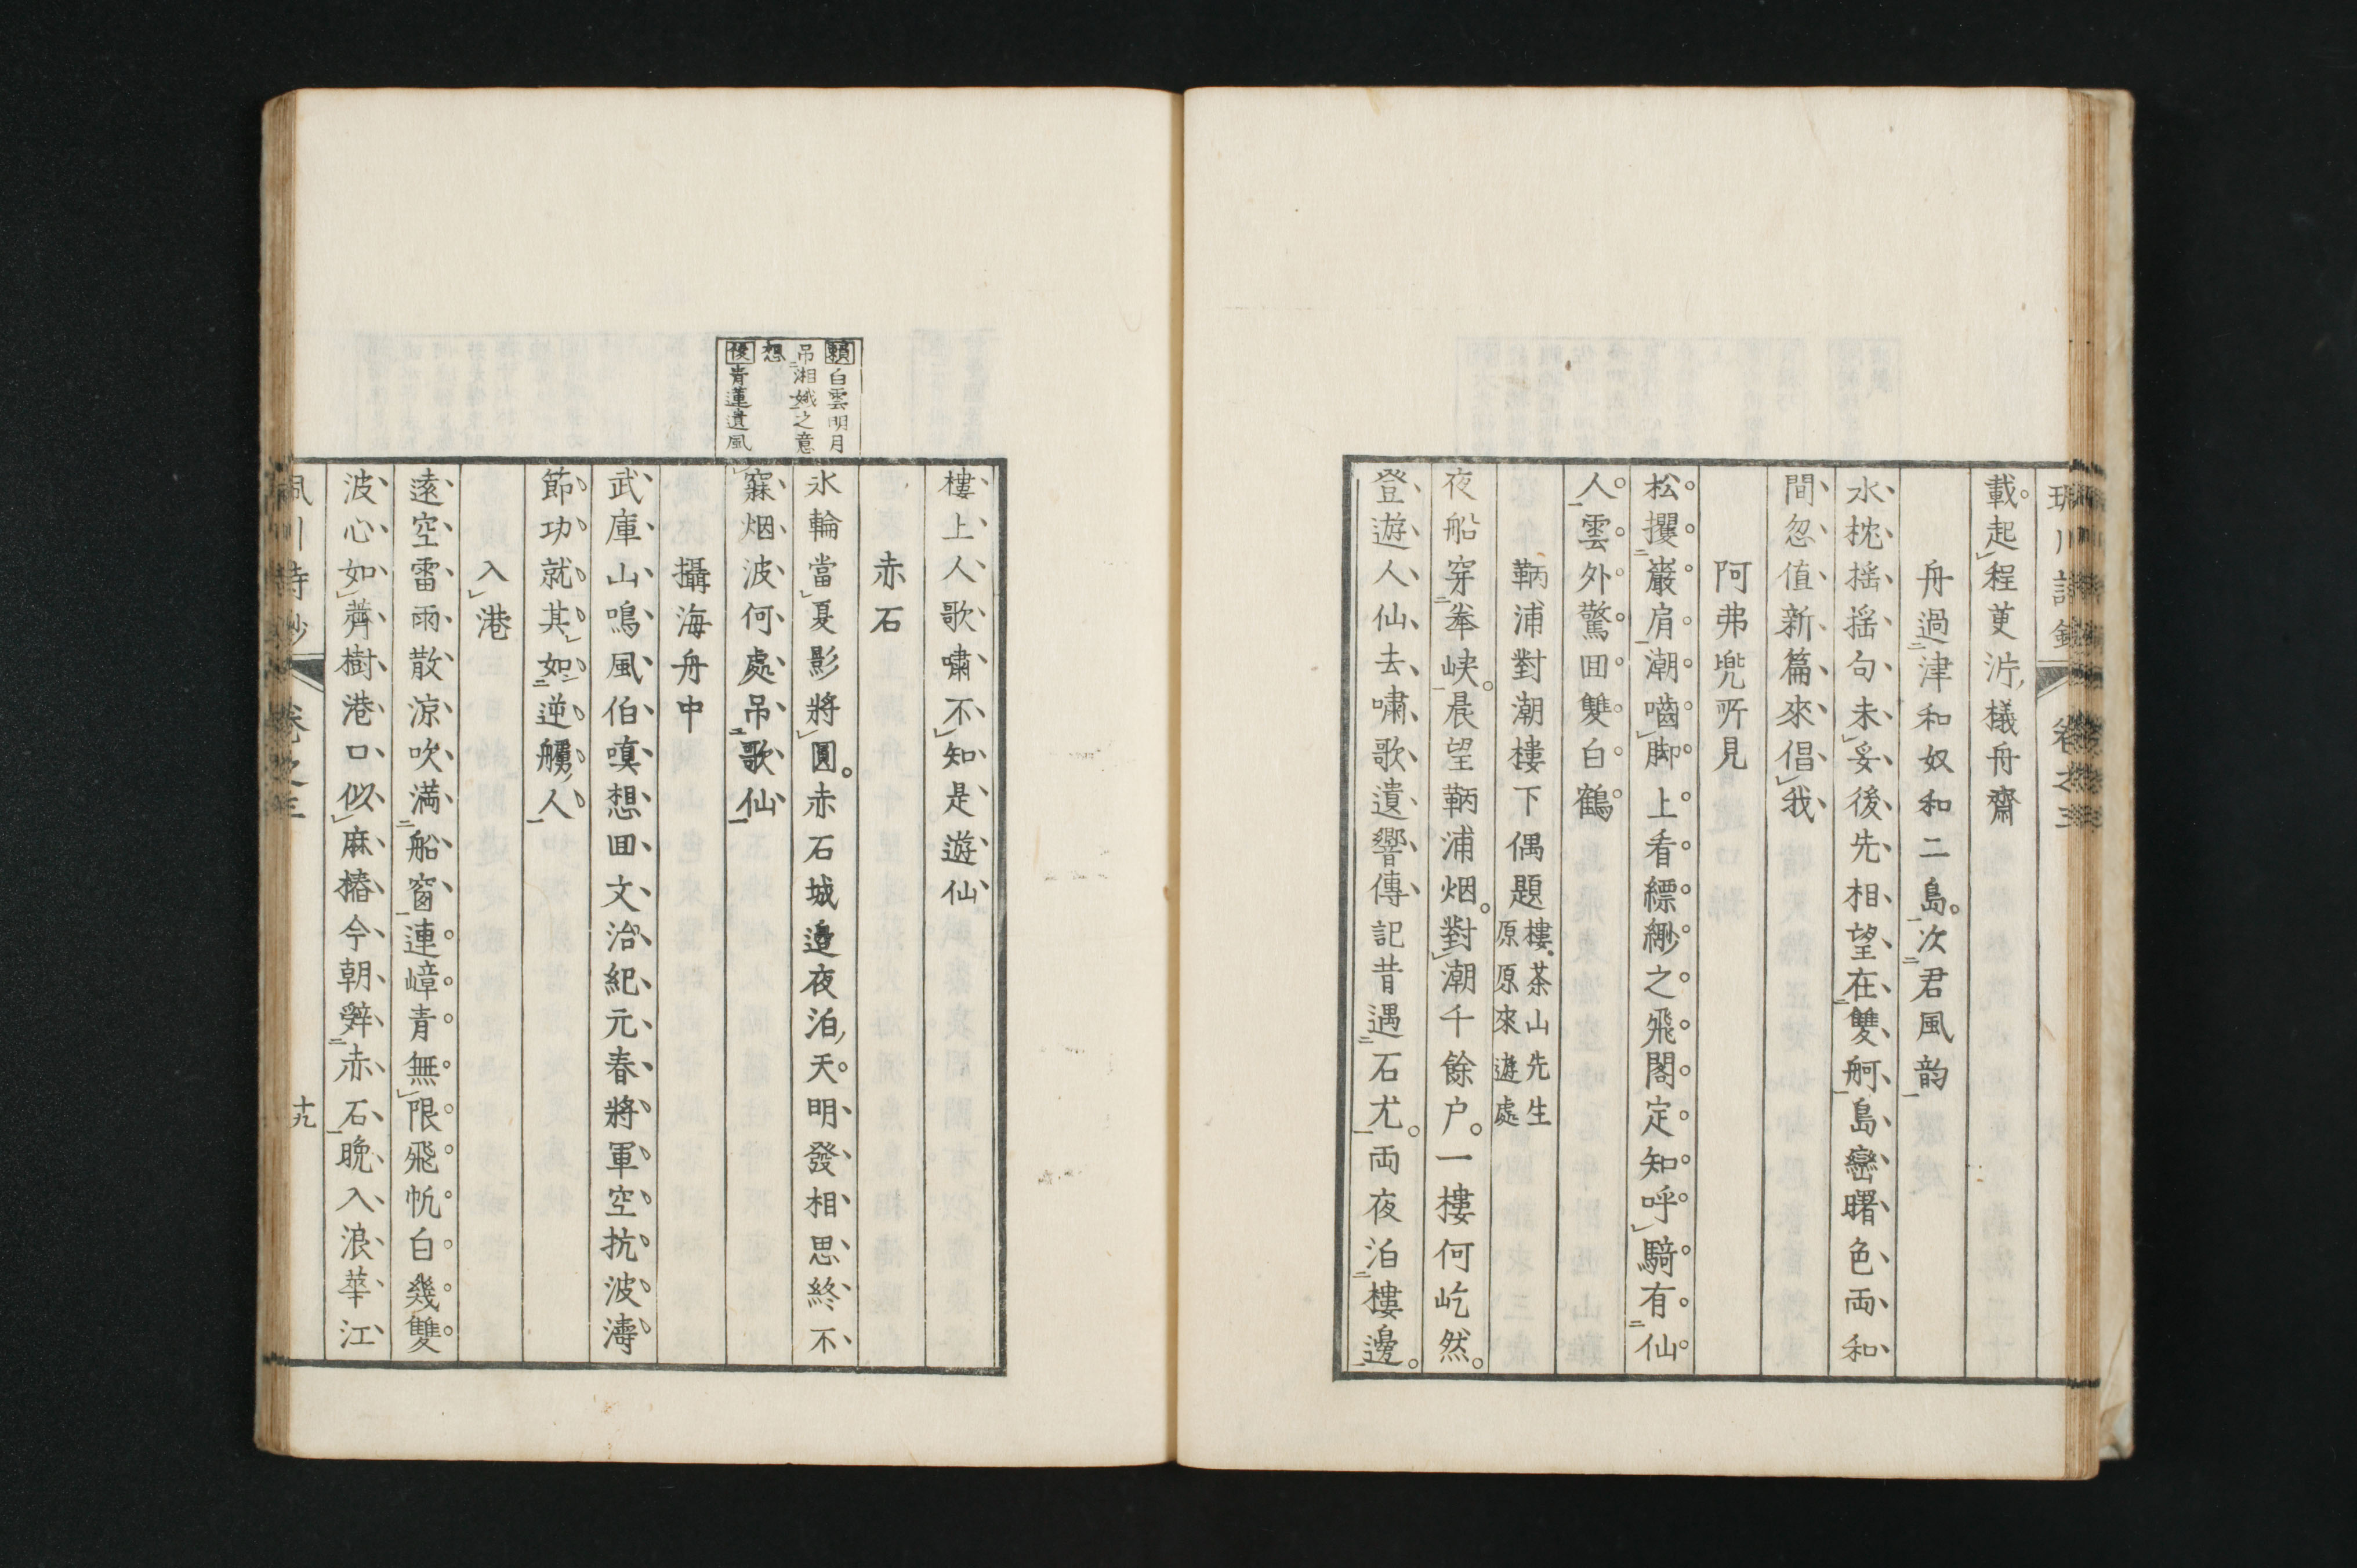 載起程更泝檥舟齋
舟過津和奴和二島次君風韵
水枕揺揺句未妥後先相望在雙舸島巒曙色両和
間忽值新篇來倡我
阿弗兜所見
松攫巖肩潮嚙脚上看縹緲之飛閣定知呼騎有仙
人雲外驚囬雙白鶴
鞆浦對潮樓下偶題樓茶山先生
原原來遊處
夜船穿峯峽晨望鞆浦烟對潮千餘户一樓何屹然
登遊人仙去嘯歌遺響傳記昔遇石尤両夜泊樓邊
樓上人歌嘯不知是遊仙
赤石
氷輪當夏影將圓赤石城邉夜泊天明發相思終不
寐烟波何處吊歌仙
頼白雲明月
吊湘娥之意
想
俊青蓮遺風
攝海舟中
武庫山鳴風伯嗔想囬文治紀元春將軍空抗波濤
節功就其如逆艣人
入港
遠空雷雨散涼吹満船窗連嶂青無限飛帆白幾雙
波心如薺樹港口似麻樁今朝辤赤石晩入浪華江
卷之三
十九